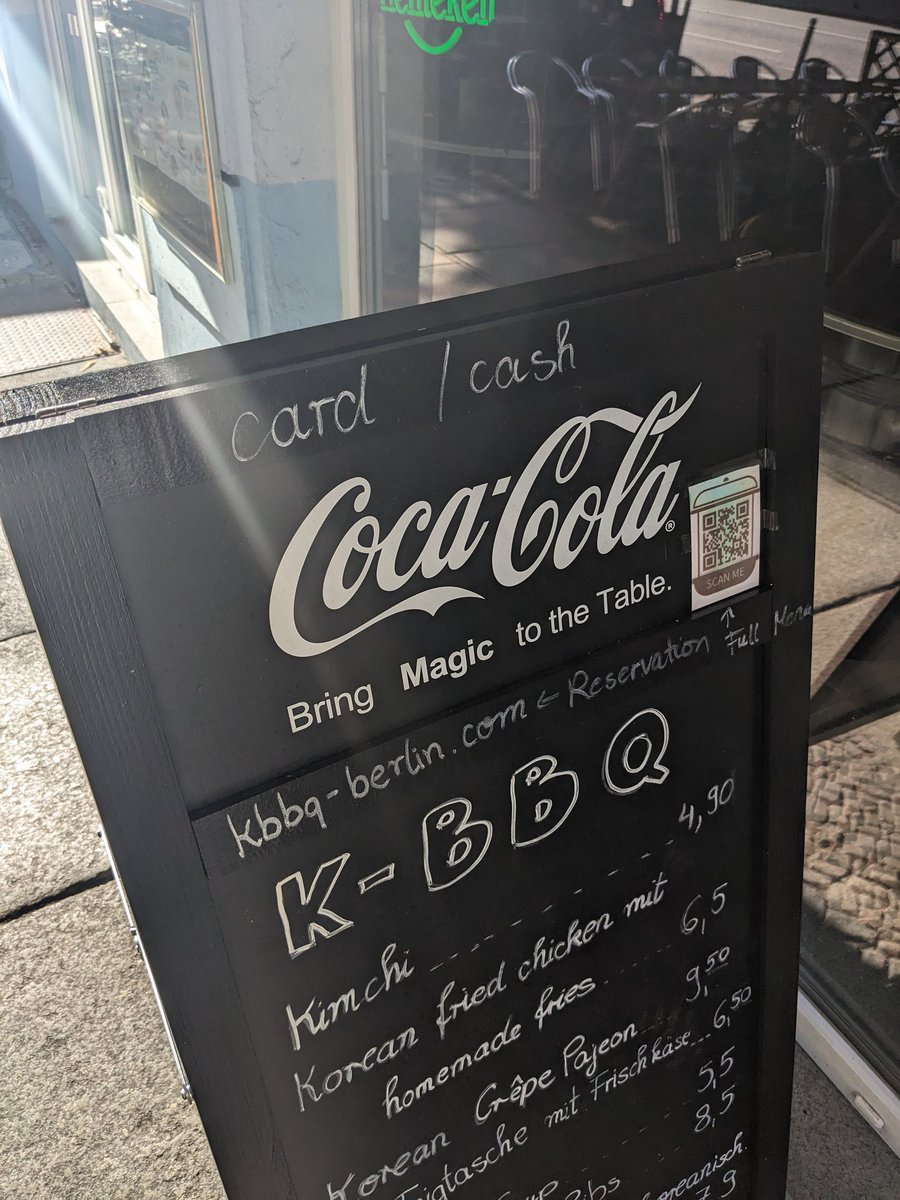 Heineken
card / cash
Coca-Cola®
Bring Magic to the Table.
SCAN ME
↑
Full Menu
kbbq-berlin.com ← Reservation
K-BBQ
Kimchi 4,90
Korean fried chicken mit
homemade fries 6,5
Korean Crêpe Pajeon 9,50
mit Frischkäse 6,50
5,5
Ribs 8,5
7,9